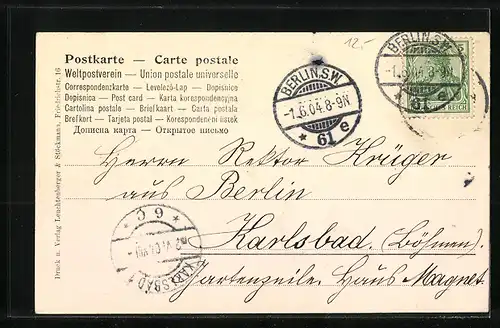 12.-
Postkarte — Carte postale
Weltpostverein — Union postale universelle
Correspondenzkarte — Levelező-Lap — Dopisnice
Dopisnica — Post card — Karta korespondencyjna
Cartolina postale — Briefkaart — Carta postala
Brefkort — Tarjeta postal — Korespondenční lístek
Дописна карта — Открытое письмо
BERLIN, S.W.
-1.6.04.8-9N
* 61 e
BERLIN, S.W.
-1.6.04.8-9N
* 61
REICH
Herrn Rektor Krüger
aus Berlin
Karlsbad. (Böhmen).
Gartenzeile. Haus Magnet.
KARLSBAD 1
* 6 C *
Druck u. Verlag Leuchtenberger & Stöckmann, Friedrichstr. 16